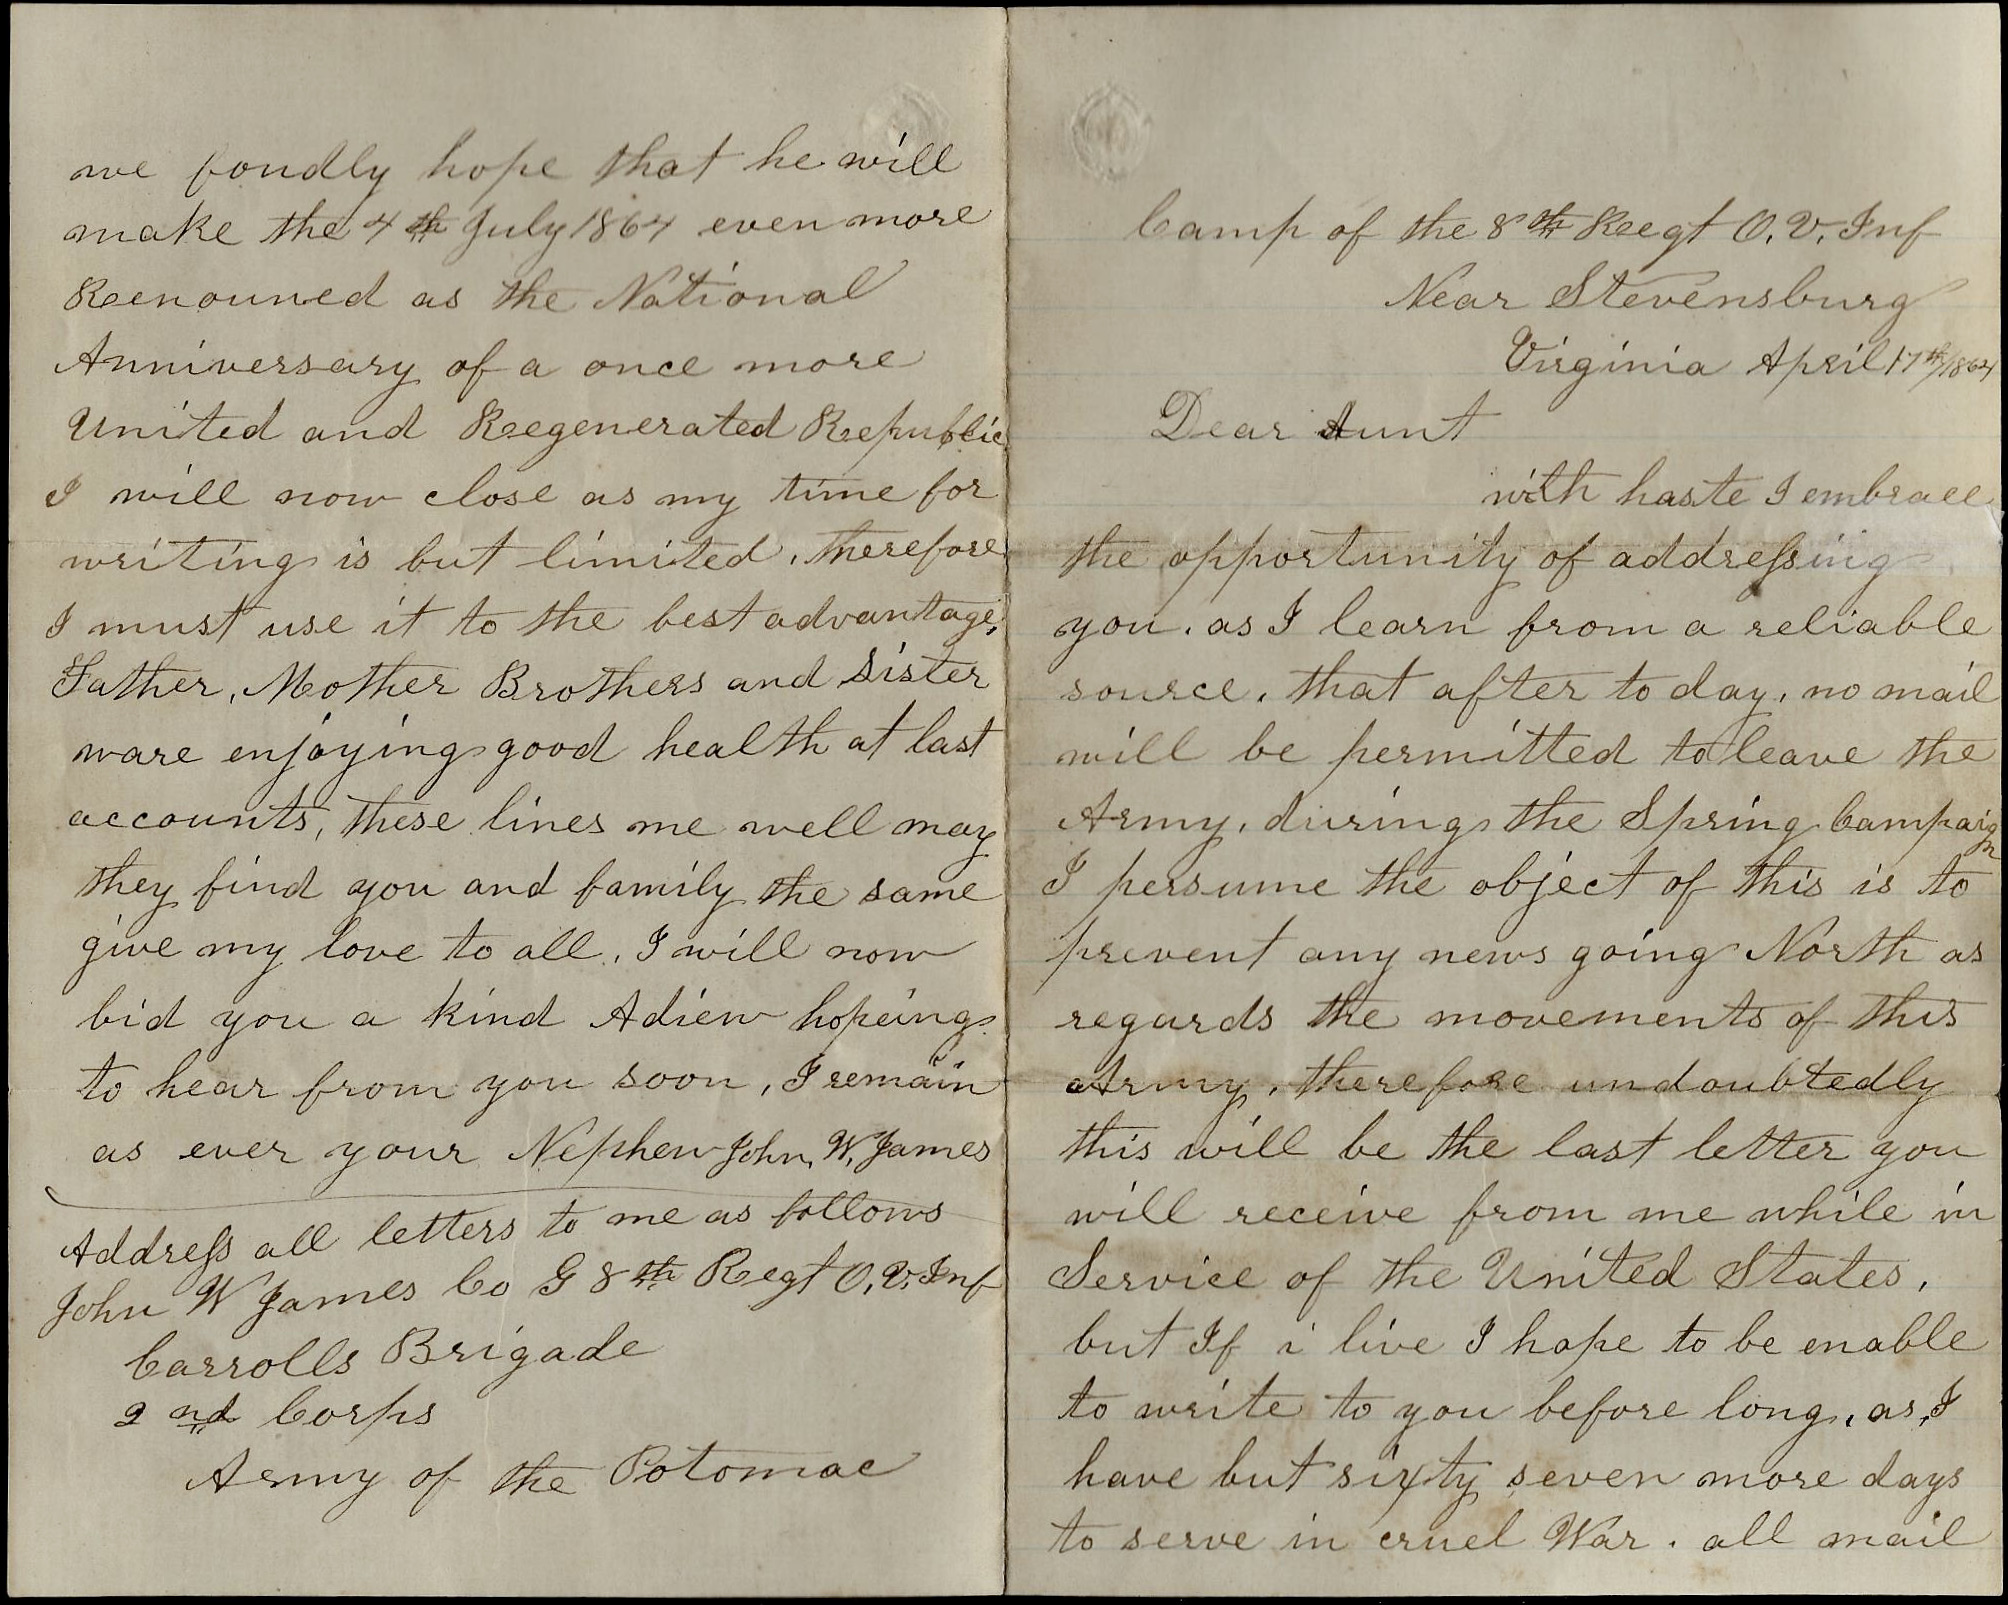 we fondly hope that he will
make the 4th July 1864 even more
Reenouned as the National
Anniversary of a once more
United and Reegenerated Republic
I will now close as my time for
writing is but limited, therefore
I must use it to the best advantage,
Father, Mother Brothers and sister
ware enjoying good health at last
accounts, these lines me well may
they find you and family the same
give my love to all, I will now
bid you a kind Adiew hopeing
to hear from you soon, I remain
as ever your Nephew John, W. James
Address all letters to me as follows
John W James Co G 8th Regt O.V. Inf
Carrolls Brigade
2nd Corps
Army of the Potomac
Camp of the 8th Reegt O.V. Inf
Near Stevensburg
Virginia April 17th/1864
Dear Aunt
with haste I embrace
the opportunity of addressing
you. as I learn from a reliable
source, that after to day, no mail
will be permitted to leave the
Army, during the Spring Campaign
I persume the object of this is to
prevent any news going North as
regards the movements of this
Army, therefore undoubtedly
this will be the last letter you
will receive from me while in
Service of the United States,
but If i live I hope to be enable
to write to you before long, as, I
have but sixty seven more days
to serve in cruel War. all mail